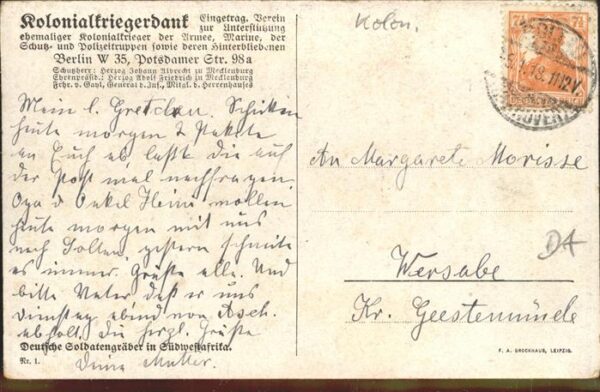 Kolonialkriegerdank Eingetrag. Verein
zur Unterstützung
ehemaliger Kolonialkrieger der Armee, Marine, der
Schutz- und Polizeitruppen sowie deren Hinterbliebenen
Berlin W 35, Potsdamer Str. 98a
Schutzherr: Herzog Johann Albrecht zu Mecklenburg
Ehrenpräsid.: Herzog Adolf Friedrich zu Mecklenburg
Frhr. v. Gayl, General d. Inf., Mitgl. d. Herrenhauses
Mein l. Gretchen. Schicken
heute morgen 2 Pakete
an Euch ab laßt die auf
der Post mal nachfragen.
Opa & Onkel Heini wollen
heute morgen mit uns
nach Soltau, gestern schneite
es immer. Grüße alle. Und
bitte Vater daß er uns
Dienstag abend von
abholt. Die herzl. Grüße
Deutsche Soldatengräber in Südwestafrika.
Nr. 1.
Deine Mutter.
Kolon.
7½ 7½
18. 11-12V.
HANNOVER
An Margarete Morisse
DA
Wersabe
Kr. Geestemünde
F. A. BROCKHAUS, LEIPZIG.